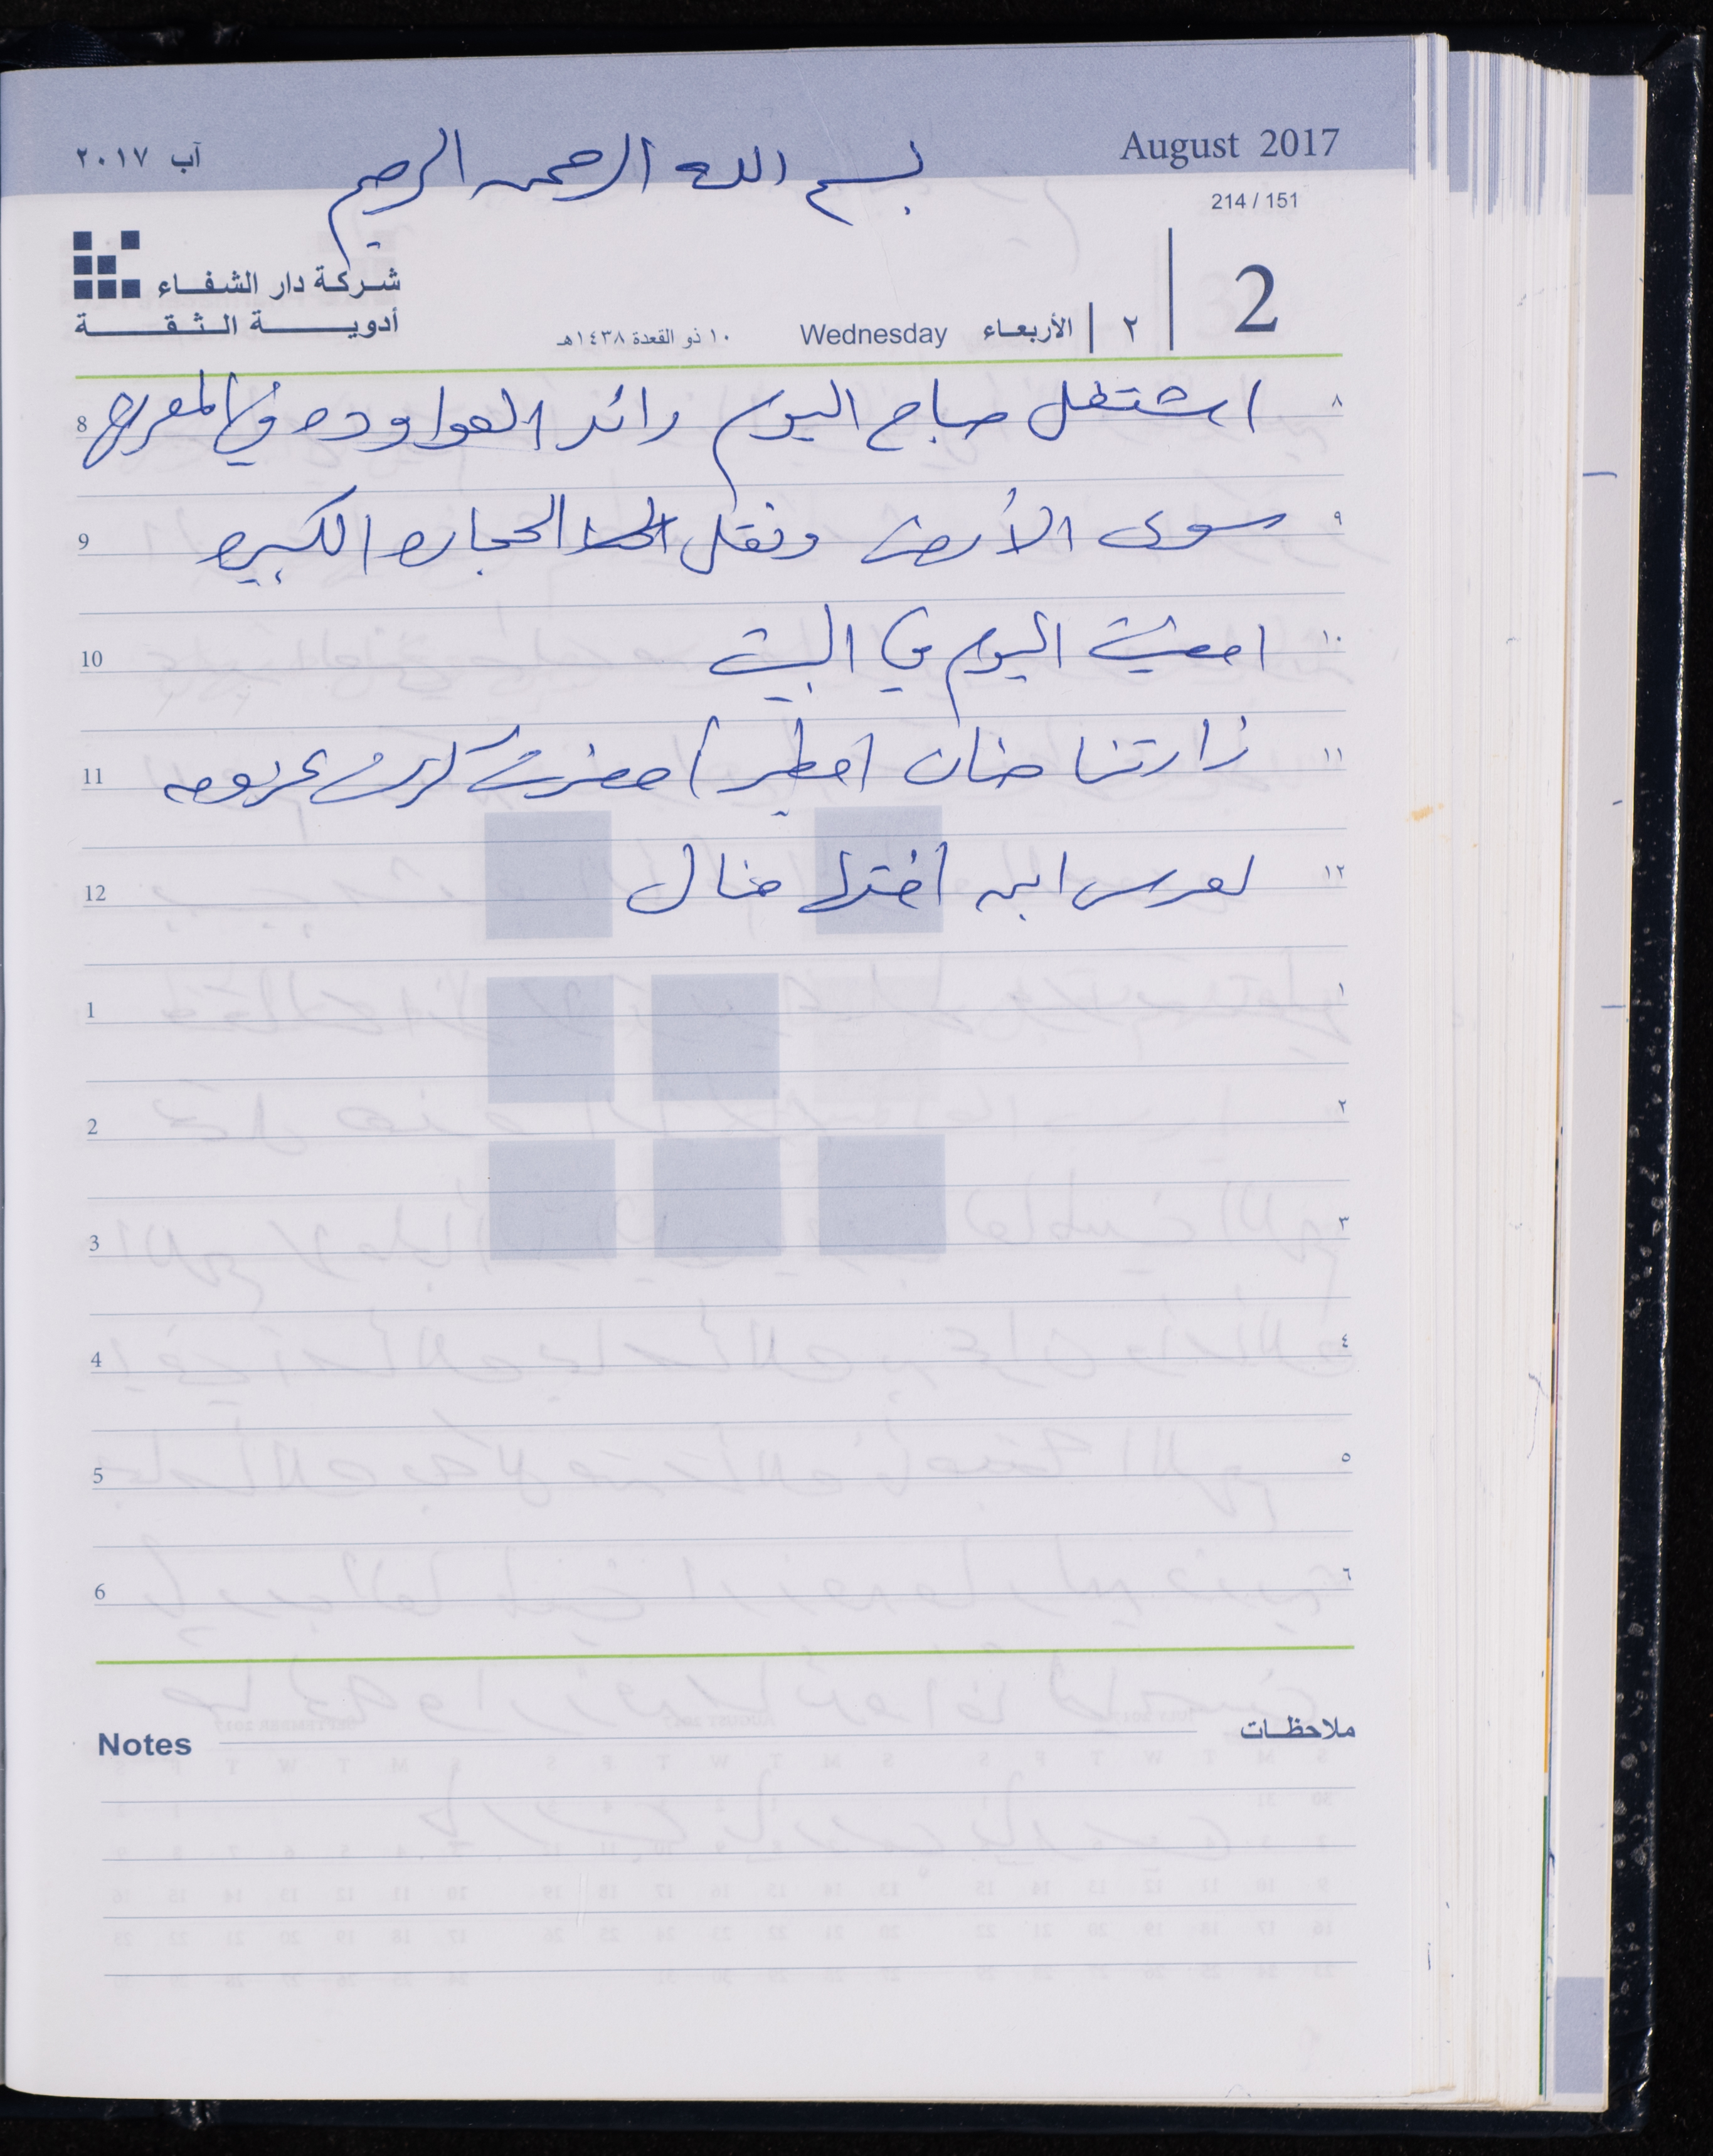 August 2017
آب ٢٠١٧
بسم الله الرحمن الرحيم
214 / 151
2
٢
الأربعاء
Wednesday
١٠ ذو القعدة ١٤٣٨هـ
شركة دار الشفاء
أدوية الثقة
8 اشتغل صباح اليوم رائد العواوده في المعرض ٨
9 سوى الأرض ونقل الحجاره الكبيره ٩
10 امضيت اليوم في البيت ١٠
11 زارتنا حنان احضرت كرت عزومه ١١
12 لعرس ابن اختها منال ١٢
1 ١
2 ٢
3 ٣
4 ٤
5 ٥
6 ٦
Notes ملاحظات